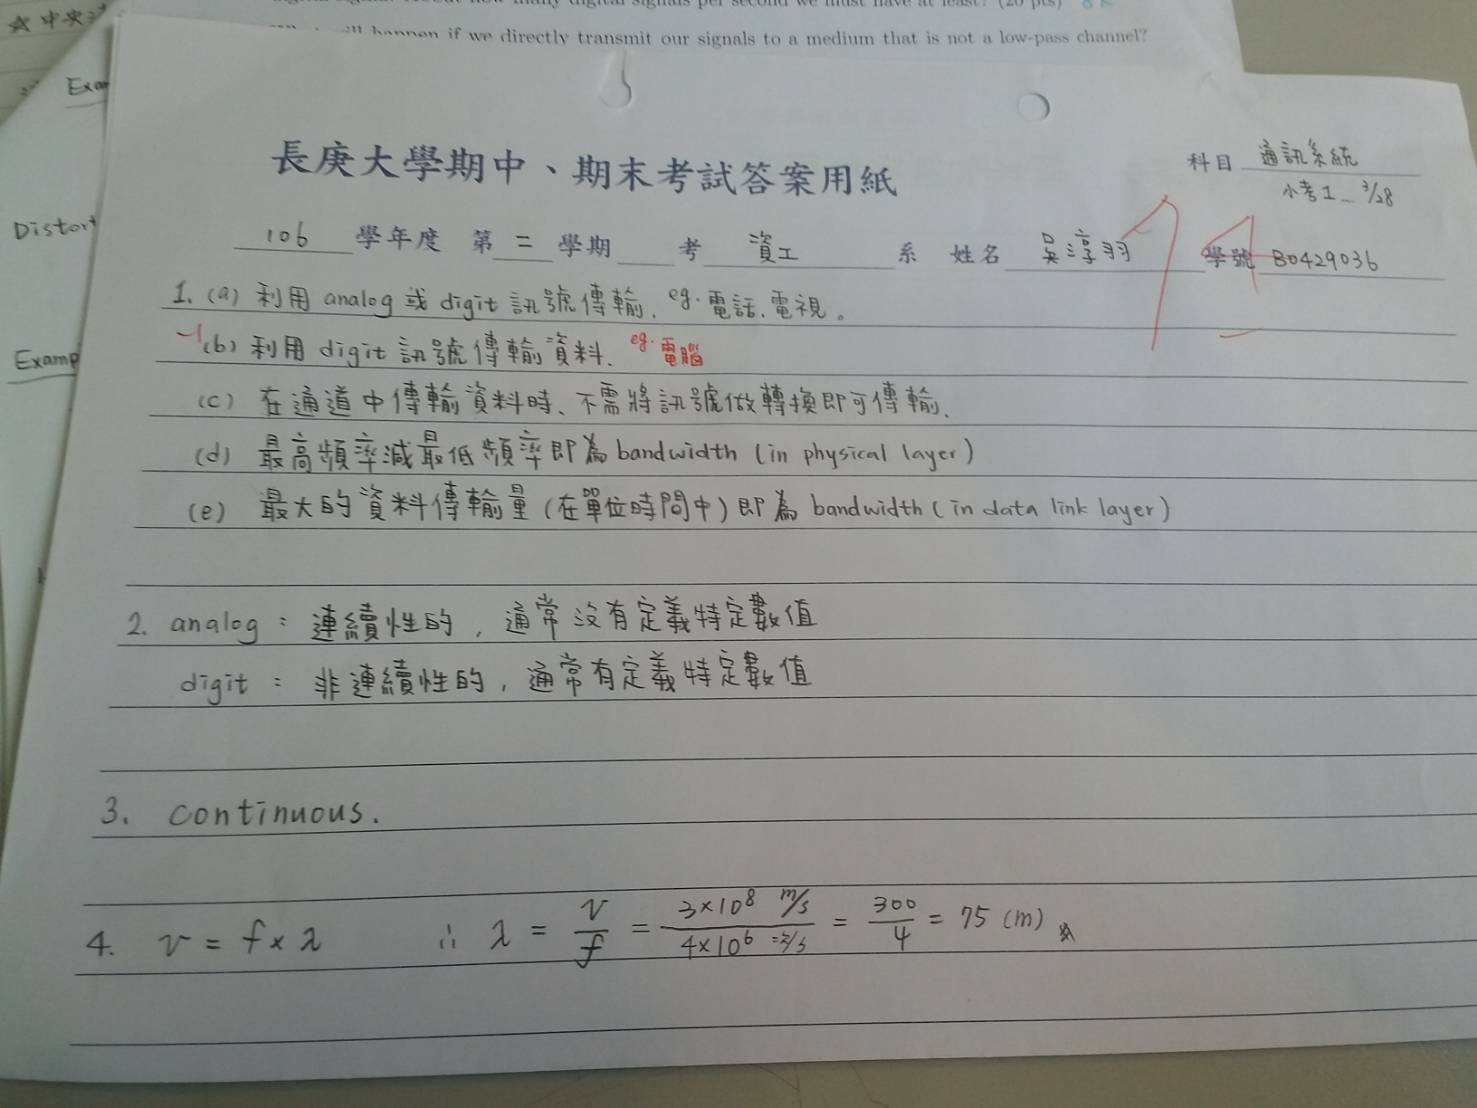 digital signals per second we must have at least? (20 pts)
happen if we directly transmit our signals to a medium that is not a low-pass channel?
☆ 中央
Exam
Distort
Examp
長庚大學期中、期末考試答案用紙
科目 通訊系統
小考1_ 3/28
106 學年度 第二學期 考 資工 系 姓名 吳淳羽 學號 B0429036
1. (a) 利用 analog 或 digit 訊號傳輸. eg. 電話.電視。
-1 (b) 利用 digit 訊號傳輸資料. eg. 電腦
(c) 在通道中傳輸資料時、不需將訊號做轉換即可傳輸.
(d) 最高頻率減最低頻率即為 bandwidth (in physical layer)
(e) 最大的資料傳輸量 (在單位時間中) 即為 bandwidth (in data link layer)
2. analog : 連續性的, 通常沒有定義特定數值
digit : 非連續性的, 通常有定義特定數值
3. continuous.
4. v = f × λ ∴ λ = v/f = 3×10⁸ m/s / 4×10⁶ = 300/4 = 75 (m)